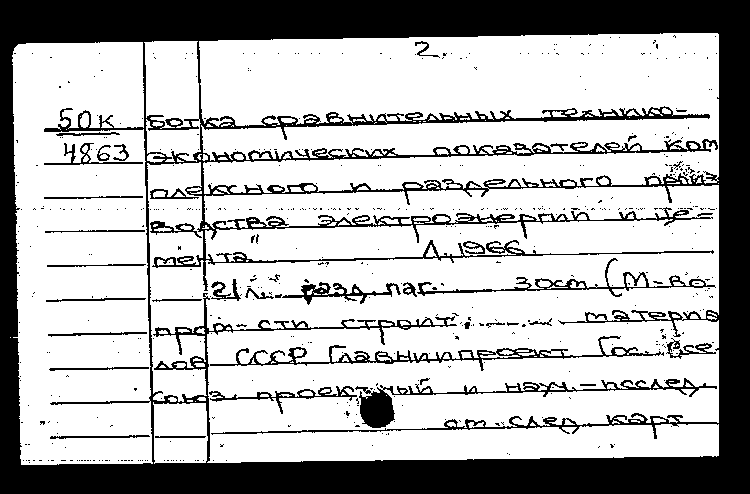 2.
50к ботка сравнительных технико-
4863 экономических показателей ком
плексного и раздельного произ
водства электроэнергии и це=
мента" Л., 1966.
21 л. разд. паг. 30 см. (М-во
пром-сти строит. материа
лов СССР Главниипроект Гос. Все
союз. проектный и науч.-исслед.
см. след. карт.